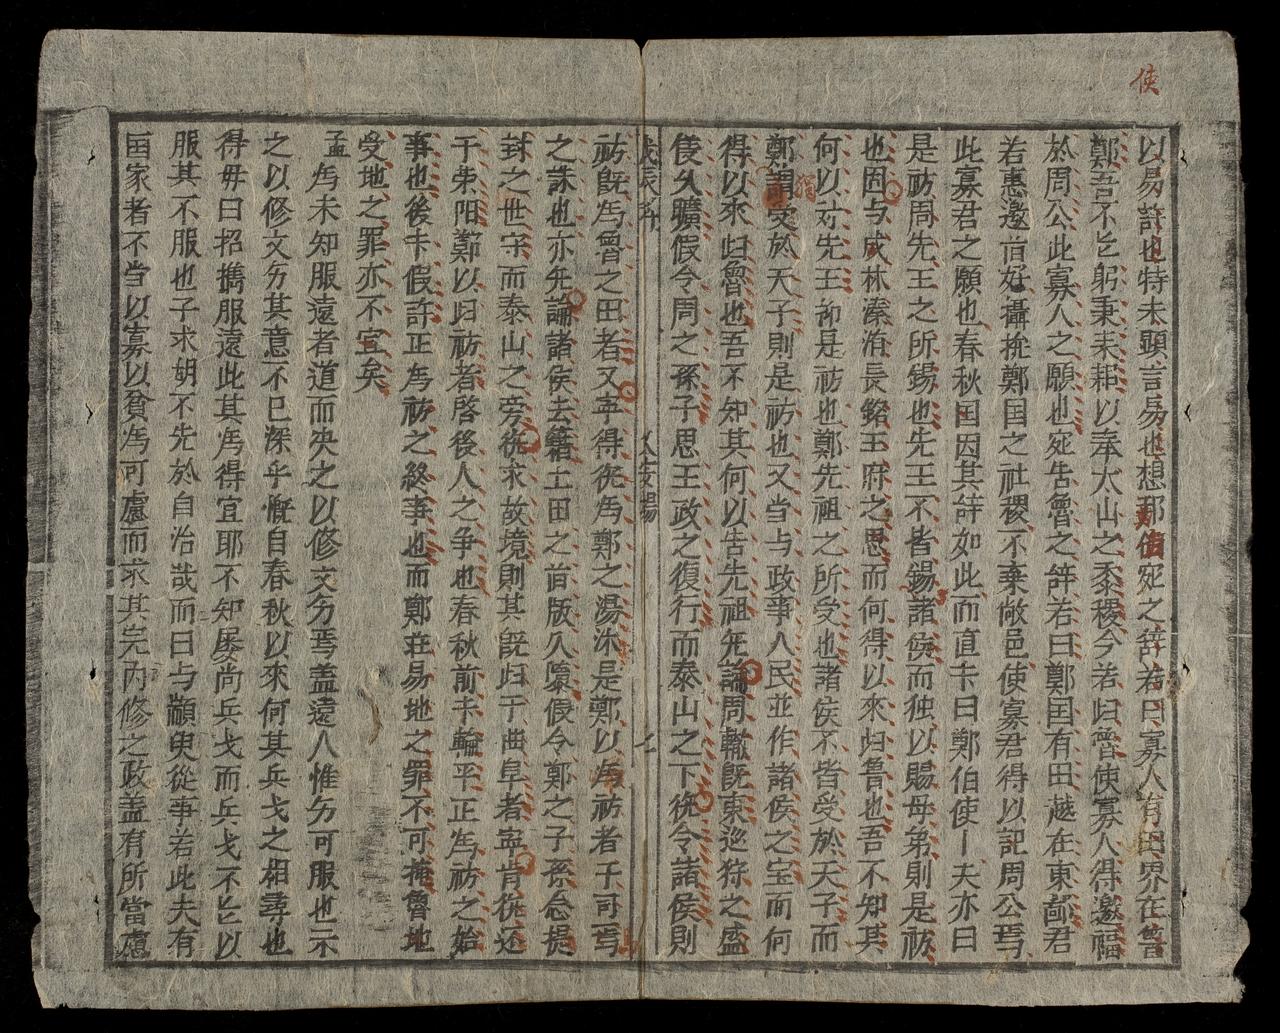 使
以易許也特未顕言易也想那使宛之辞若曰寡人有田界在魯
鄭吾不匕躬秉耒耜以奉太山之黍稷今若归魯使寡人得邀福
於周公此寡人之願也宛告魯之辞若曰鄭国有田越在東鄙君
若惠邀前好攝挽鄭国之社稷不棄敝邑使寡君得以記周公焉
此寡君之願也春秋国因其辞如此而直卡曰鄭伯使丨夫亦曰
是祊周先王之所錫也先王不皆錫諸侯而独以賜母弟則是祊
也固与成林溱洧長銘王府之思而何得以來归鲁也吾不知其
何以对先王祊是祊也鄭先祖之所受也諸侯不皆受於天子而
鄭謂受於天子則是祊也又当与政事人民並作諸侯之宝而何
得以來归魯也吾不知其何以告先祖无論周轍既東巡狩之盛
後久曠假令周之孫子思王政之復行而泰山之下祝令諸侯則
祊既為魯之田者又寕得祝為鄭之湯沐是鄭以為祊者子可焉
之誅也亦无論諸侯去籍土田之首版久隳假令鄭之子孫念提
封之世守而泰山之旁祝求故境則其既归于曲阜者寕肯祝还
于荣阳鄭以归祊者啓後人之争也春秋前卡輸平正為祊之始
事也後卡假許正為祊之終事也而鄭莊易地之罪不可掩魯地
受地之罪亦不宜矣
孟
為未知服遠者道而央之以修文勿焉盖遠人惟勿可服也不
之以修文勿其意不已深乎慨自春秋以來何其兵戈之相尋也
得毋曰招擕服遠此其為得宜耶不知屡尚兵戈而兵戈不匕以
服其不服也子求胡不先於自治哉而曰与顓臾從事若此夫有
国家者不当以寡以貧為可慮而求其先內修之政盖有所當慮